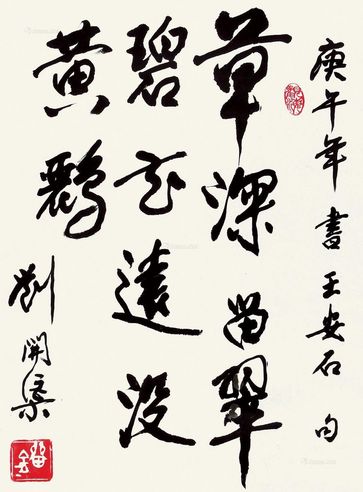 庚午年書王安石句
草深留翠
碧花遠没
黄鸝
劉開渠